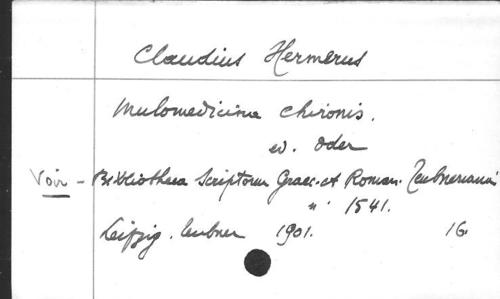 Claudius Hermerus
Mulomedicina Chironis.
ed. Oder
Voir - Bibliotheca Scriptorum Graec. et Roman. Teubneriana
" 1541.
Leipzig. Teubner 1901. 16.